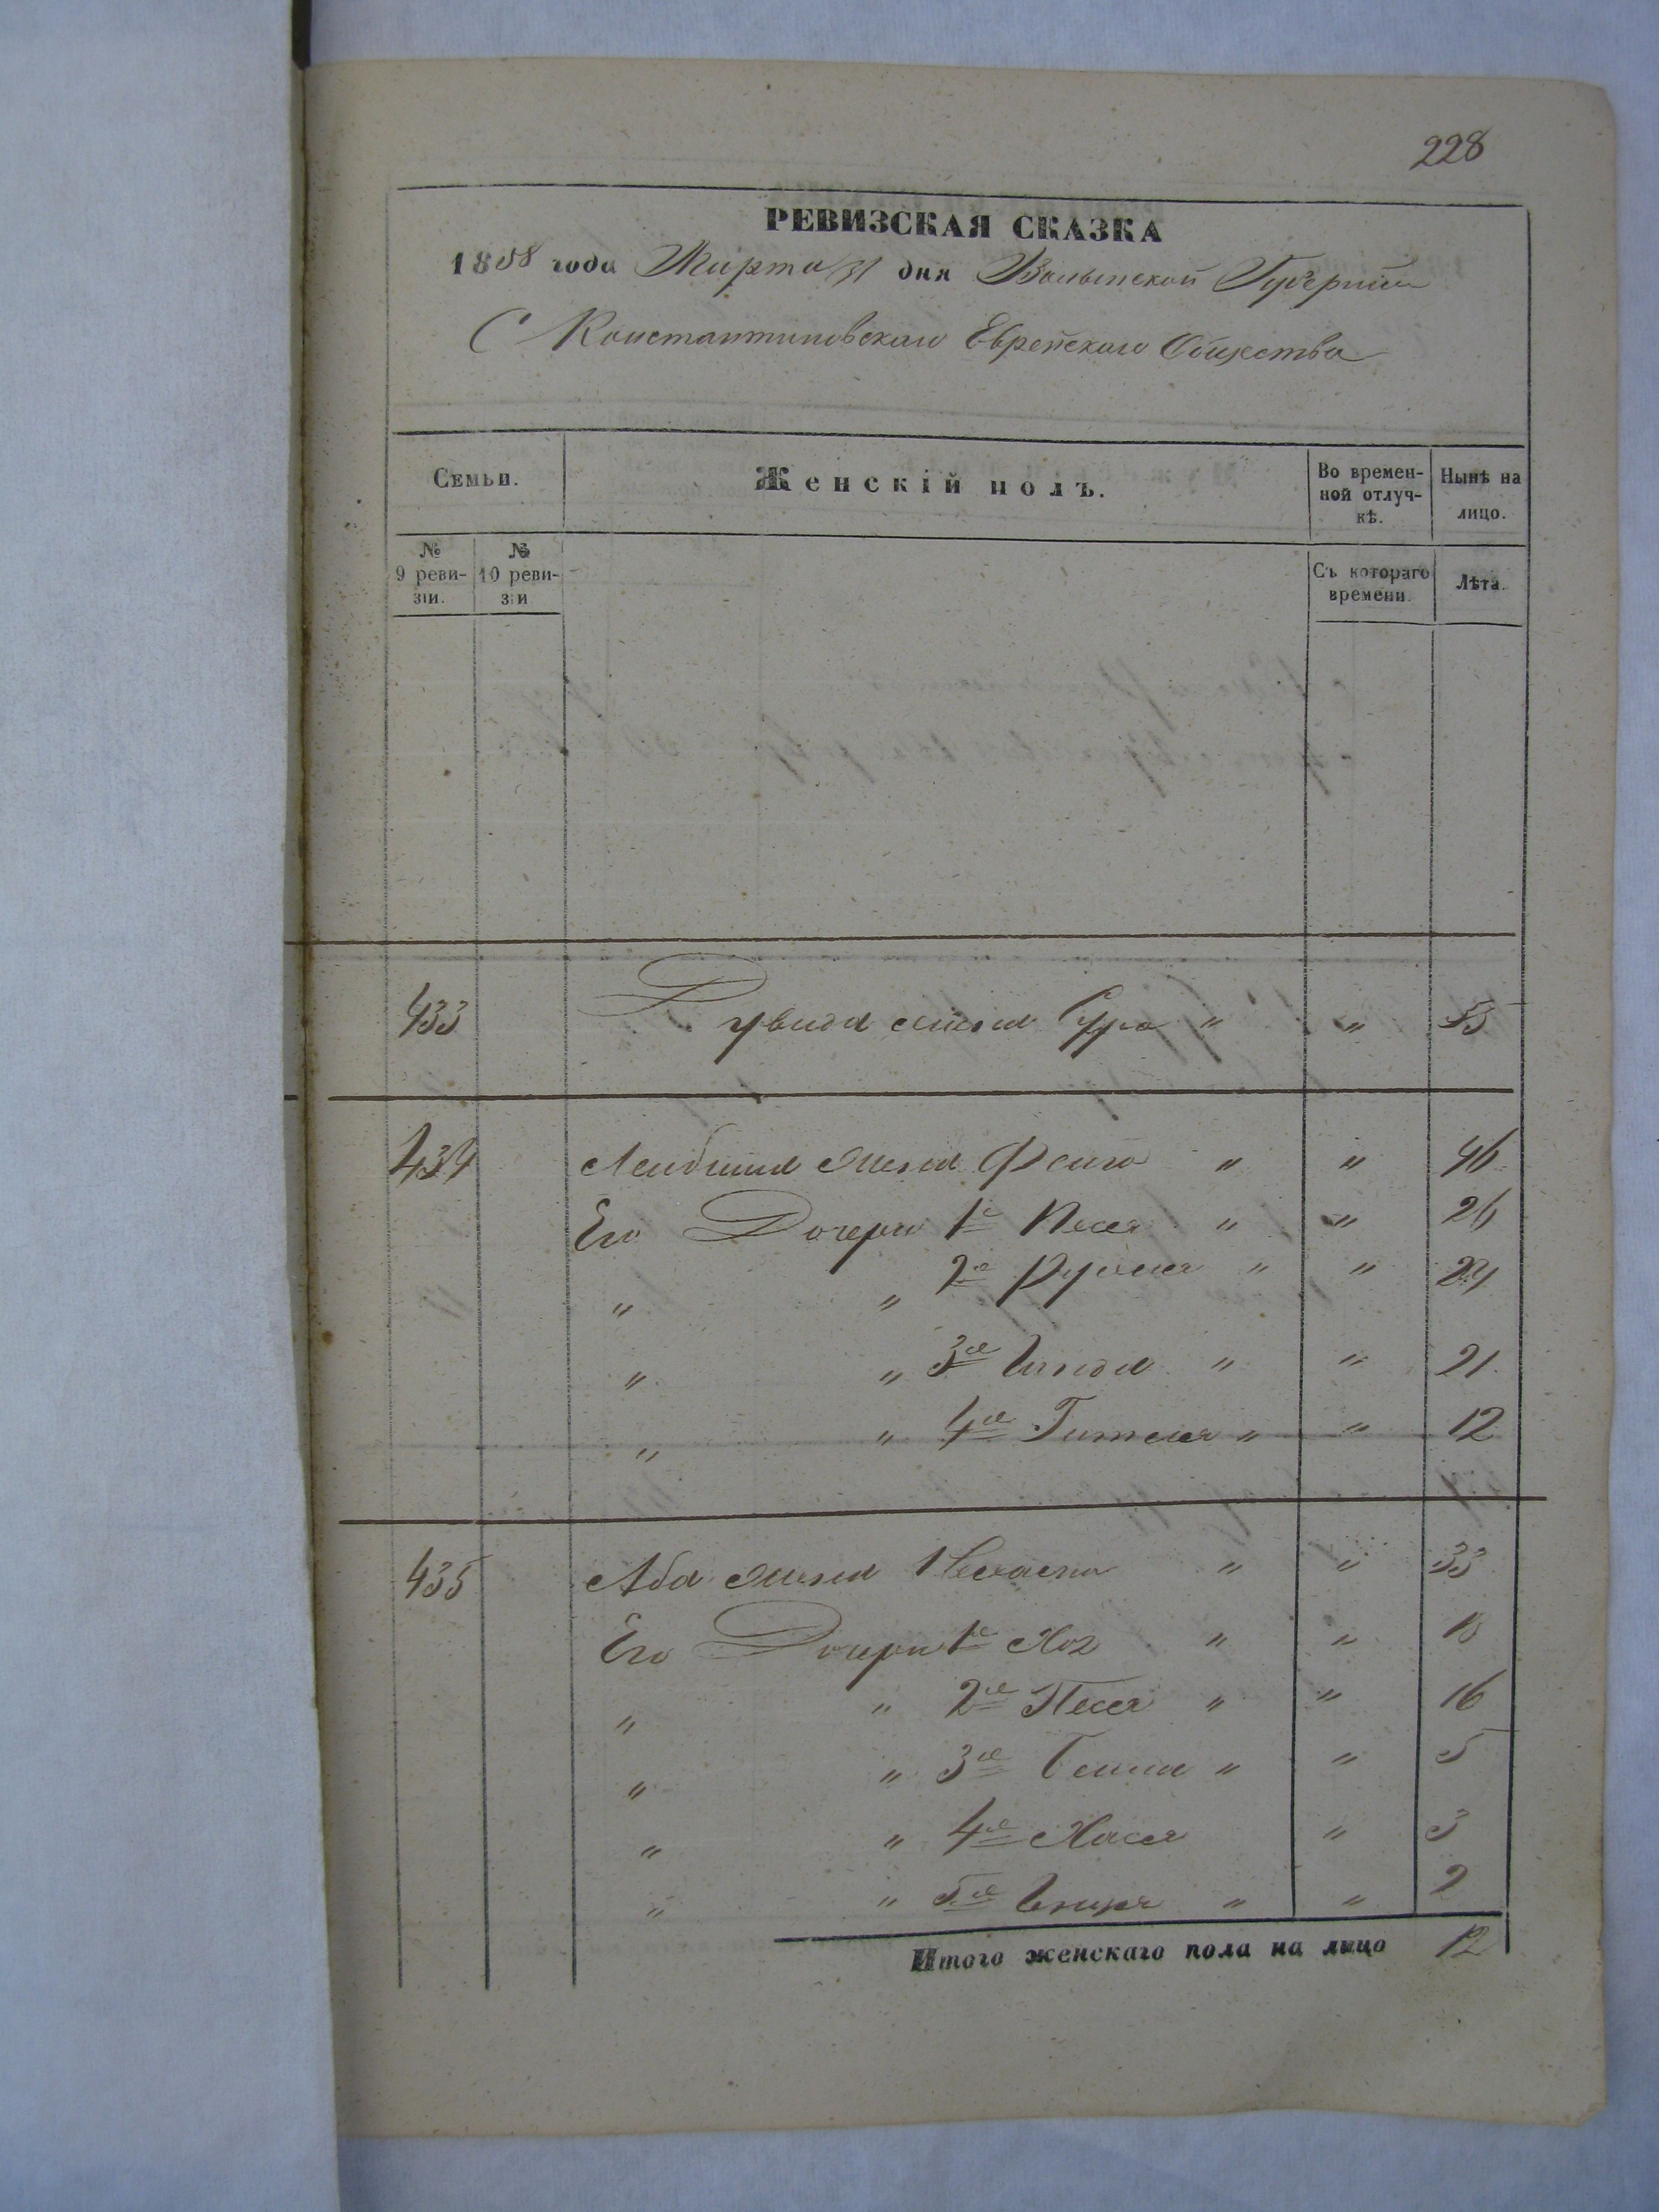 228
РЕВИЗСКАЯ СКАЗКА
1858 года Марта 31 дня Волынской Губернии
С Константиновскаго Еврейскаго Общества
Семьи. Женскій полъ. Во временной отлучкѣ. Нынѣ на лицо.
№ 9 ревизіи. № 10 ревизіи Съ котораго времени. Лѣта.
433 жена Сура " " 53
434 Лейбиша жена Фейга " " 46
Его Дочери 1я Песя " " 26
" " 2я " " 24
" " 3я " " 21
" " 4я Гителя " " 12
435 Аба жена " " 33
Его Дочери 1я Хая " " 18
" " 2я Песя " " 16
" " 3я " " 5
" " 4я Хася " 3
" " 5я " " 2
Итого женскаго пола на лицо 12